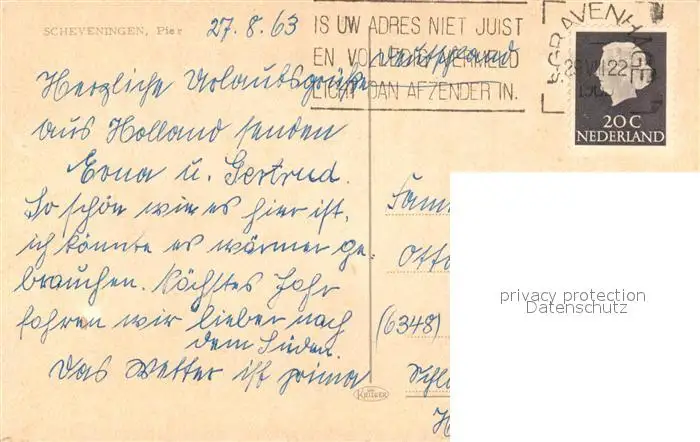 SCHEVENINGEN, Pier
27.8.63
IS UW ADRES NIET JUIST
EN VOLLEDIG VERMELD
LICHT DAN AFZENDER IN.
'S GRAVENHAGE
22
20 C
NEDERLAND
Deutschland
Herzliche Urlaubsgrüße
aus Holland senden
Erna u. Gertrud.
So schön wie es hier ist,
ich könnte es wärmer ge-
brauchen. Nächstes Jahr
fahren wir lieber nach
dem Süden.
Das Wetter ist prima
KRÜGER
Fam
Otto
(6348)
Schl
H
privacy protection
Datenschutz